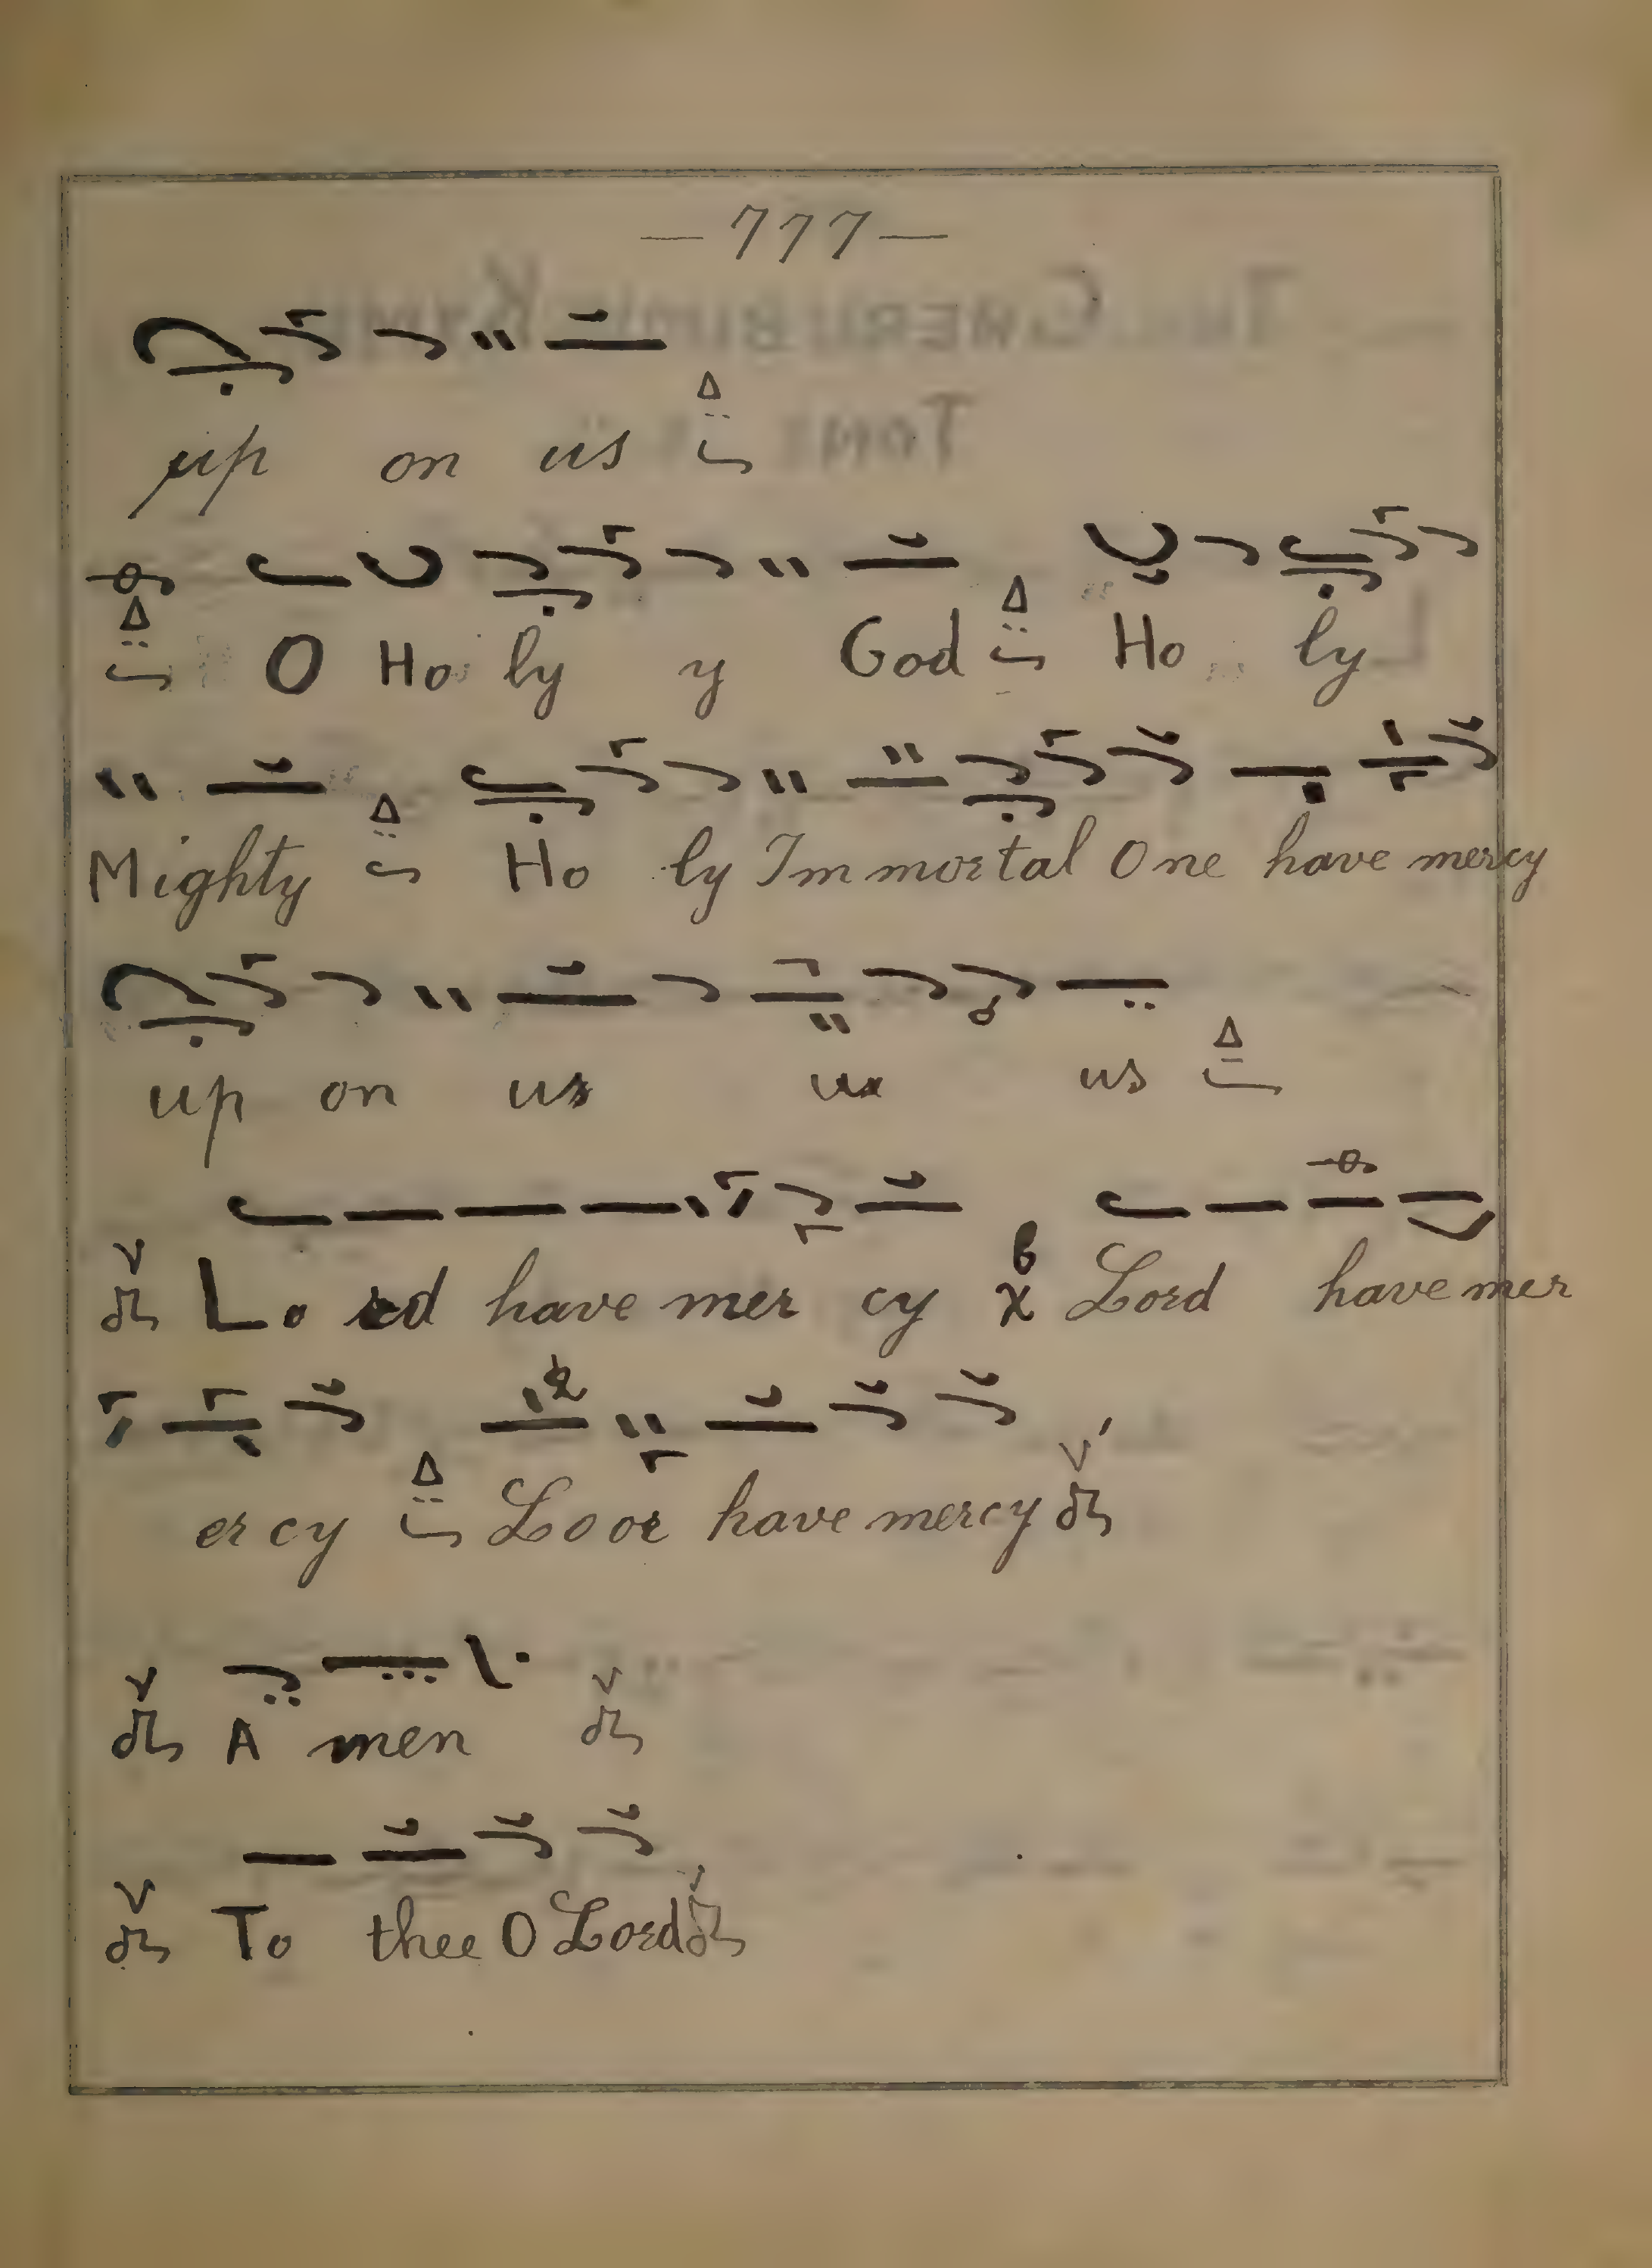 — 777 —
up on us
O Ho ly y God Ho ly
Mighty Ho ly Im mortal One have mercy
up on us us us
Lo rd have mer cy Lord have mer
er cy Lo or have mercy
A men
To thee O Lord